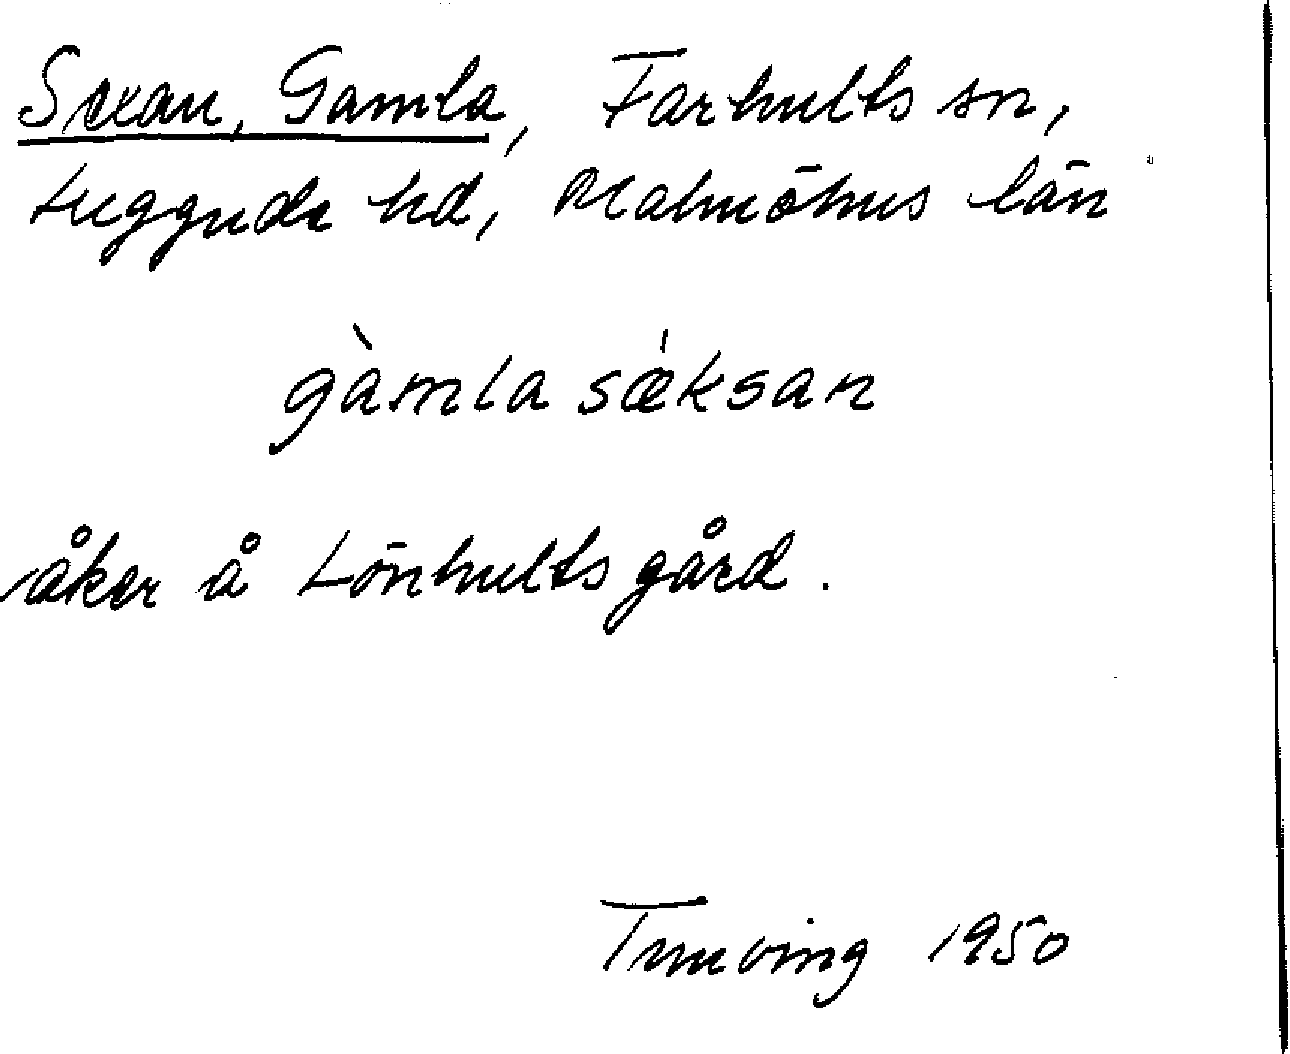 Sexan, Gamla, Farhults sn,
Luggude hd, Malmöhus län
gàmla sæ̍ksan
åker å Lönhults gård.
Tunving 1950